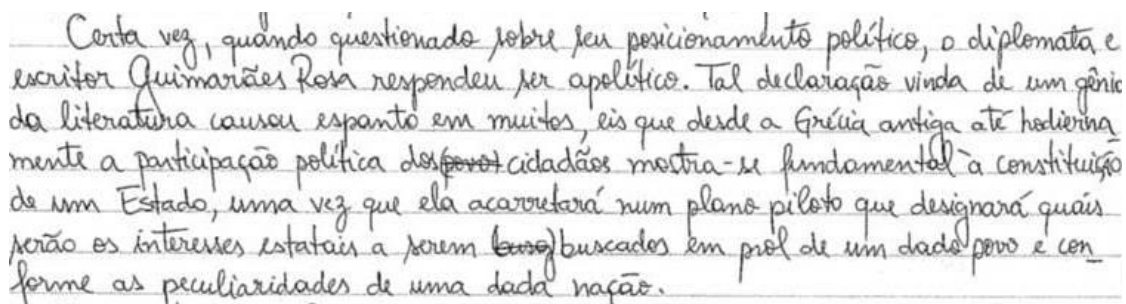 Certa vez, quando questionado sobre seu posicionamento político, o diplomata e
escritor Guimarães Rosa respondeu ser apolítico. Tal declaração vinda de um gênio
da literatura causou espanto em muitos, eis que desde a Grécia antiga até hodierna
mente a participação política dos (povo) cidadãos mostra-se fundamental à constituição
de um Estado, uma vez que ela acarretará num plano piloto que designará quais
serão os interesses estatais a serem (busc) buscados em prol de um dado povo e con_
forme as peculiaridades de uma dada nação.